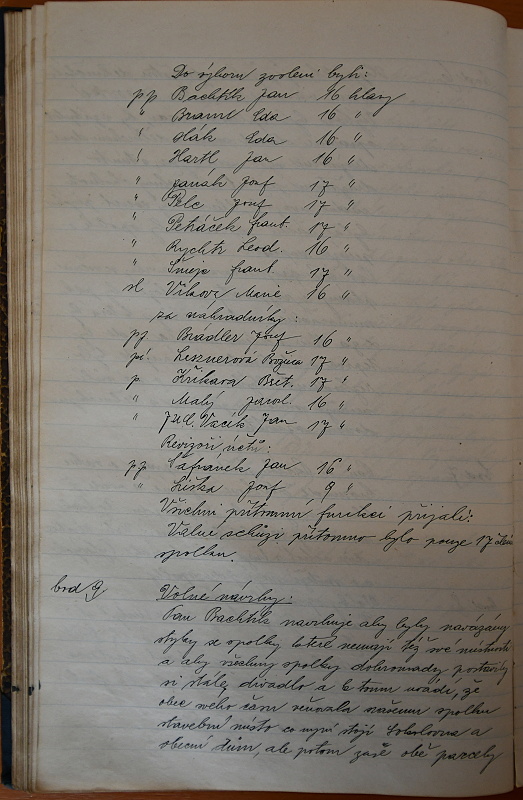 Do výboru zvoleni byli:
pp Bachtík Jan 16 hlasy
" Braml Eda 16 "
" Hák Eda 16 "
" Hartl Jan 16 "
" Janák Josef 17 "
" Pelc Josef 17 "
" Petráček Frant. 17 "
" Rychtr Leod. 16 "
" Šmejc Frant. 17 "
sl Vlkova Marie 16 "
za náhradníky:
pp Brádler Josef 16 "
pí Lisnerová Božena 17 "
p. Křikava Břet. 17 "
" Malý Jarosl. 16 "
" JUC. Vacík Jan 17 "
Revizoři účtů:
pp Šafranek Jan 16 "
" Liška Josef 9 "
Všichni přítomní funkci přijali.
Valné schůzi přítomno bylo pouze 17 členů
spolku.
bod 9 Volné návrhy:
Pan Bachtík navrhuje aby byly navázány
styky se spolky které nemají též své místnosti
a aby všechny spolky dohromady postavily
si stálé divadlo a k tomu uvádí, že
obec svého času věnovala našemu spolku
stavební místo co nyní stojí Sokolovna a
obecní dům, ale potom zase obě parcely